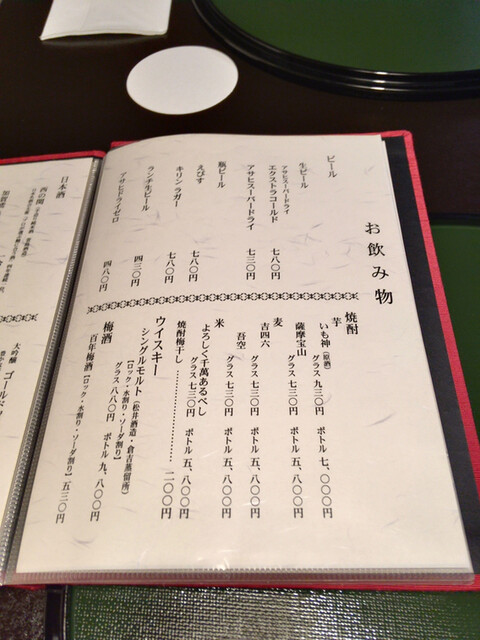 お飲み物
ビール
生ビール
アサヒスーパードライ
エクストラコールド 七八〇円
アサヒスーパードライ 七三〇円
瓶ビール
えびす 七八〇円
キリンラガー 七八〇円
ランチ生ビール 四三〇円
アサヒドライゼロ 四八〇円
焼酎
芋
いも神（原酒）
グラス 九三〇円 ボトル 七、〇〇〇円
薩摩宝山
グラス 七三〇円 ボトル 五、八〇〇円
麦
吉四六
グラス 七三〇円 ボトル 五、八〇〇円
吾空
グラス 七三〇円 ボトル 五、八〇〇円
米
よろしく千萬あるべし
グラス 七三〇円 ボトル 五、八〇〇円
焼酎梅干し 二〇〇円
ウイスキー
シングルモルト【松井酒造・倉吉蒸留所】
【ロック・水割り・ソーダ割り】
グラス 八八〇円 ボトル 九、八〇〇円
梅酒
百年梅酒【ロック・水割り・ソーダ割り】 五三〇円
日本酒
西の関
大吟醸